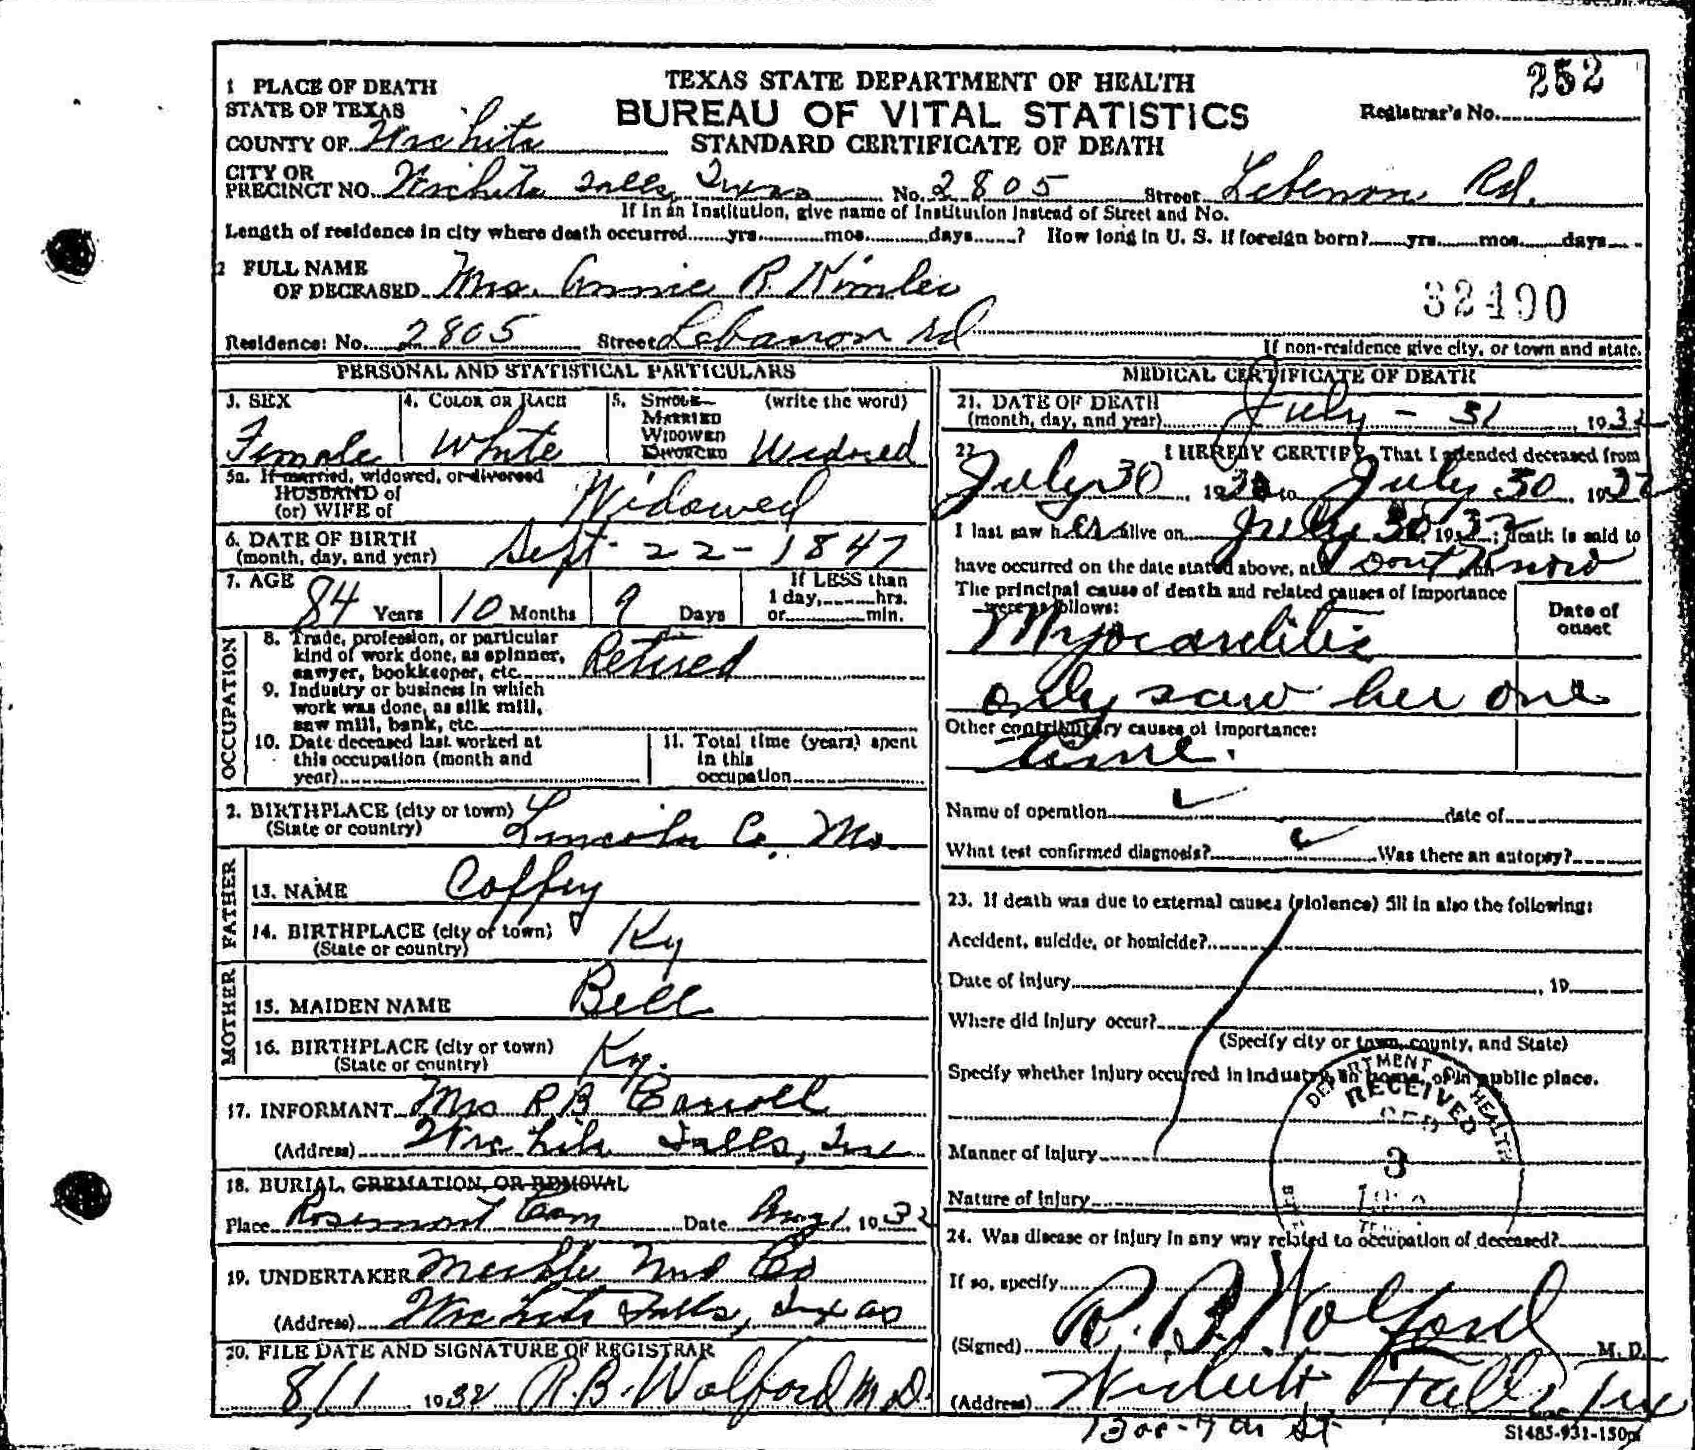 252
TEXAS STATE DEPARTMENT OF HEALTH
BUREAU OF VITAL STATISTICS
STANDARD CERTIFICATE OF DEATH
Registrar's No.
1 PLACE OF DEATH
STATE OF TEXAS
COUNTY OF Wichita
CITY OR
PRECINCT NO. Wichita Falls, Texas No. 2805 Street Lebenon Rd.
If in an Institution, give name of Institution instead of Street and No.
Length of residence in city where death occurred yrs. mos. days ? How long in U. S. if foreign born? yrs. mos. days
2 FULL NAME
OF DECEASED Mrs. Annie R. Kimler
32490
Residence: No. 2805 Street Lebanon Rd
If non-residence give city, or town and state.
PERSONAL AND STATISTICAL PARTICULARS
3. SEX Female
4. COLOR OR RACE White
5. SINGLE MARRIED WIDOWED DIVORCED (write the word) Widowed
5a. If married, widowed, or divorced
HUSBAND of
(or) WIFE of Widowed
6. DATE OF BIRTH
(month, day, and year) Sept - 22 - 1847
7. AGE 84 Years 10 Months 9 Days If LESS than
1 day, hrs.
or min.
OCCUPATION
8. Trade, profession, or particular
kind of work done, as spinner,
sawyer, bookkeeper, etc. Retired
9. Industry or business in which
work was done, as silk mill,
saw mill, bank, etc.
10. Date deceased last worked at
this occupation (month and
year)
11. Total time (years) spent
in this
occupation
2. BIRTHPLACE (city or town)
(State or country) Lincoln Co. Mo.
FATHER
13. NAME Coffey
14. BIRTHPLACE (city or town)
(State or country) Ky
MOTHER
15. MAIDEN NAME Bell
16. BIRTHPLACE (city or town)
(State or country) Ky.
17. INFORMANT Mrs R B Carroll
(Address) Wichita Falls, Tex
18. BURIAL, CREMATION, OR REMOVAL
Place Rosemont Cem Date Aug 1, 1932
19. UNDERTAKER Und Co
(Address) Wichita Falls, Texas
20. FILE DATE AND SIGNATURE OF REGISTRAR
8/1 1932 R.B. Wolford M.D.
MEDICAL CERTIFICATE OF DEATH
21. DATE OF DEATH
(month, day, and year) July - 31, 1932
22. I HEREBY CERTIFY, That I attended deceased from
July 30, 1932 to July 30, 1932
I last saw her alive on July 30, 1932; death is said to
have occurred on the date stated above, at Dont Know
The principal cause of death and related causes of importance
were as follows:
Date of
onset
Myocarditis
only saw her one
Other contributary causes of importance:
time.
Name of operation date of
What test confirmed diagnosis? Was there an autopsy?
23. If death was due to external causes (violence) fill in also the following:
Accident, suicide, or homicide?
Date of injury , 19
Where did injury occur?
(Specify city or town, county, and State)
Specify whether injury occurred in industry, in home, or in public place.
DEPARTMENT OF HEALTH
RECEIVED
SEP
3
Manner of injury
Nature of injury
24. Was disease or injury in any way related to occupation of deceased?
If so, specify
(Signed) R. B. Wolford M. D.
(Address) Wichita Falls, Tex
1300-7th St
S1485-931-150m